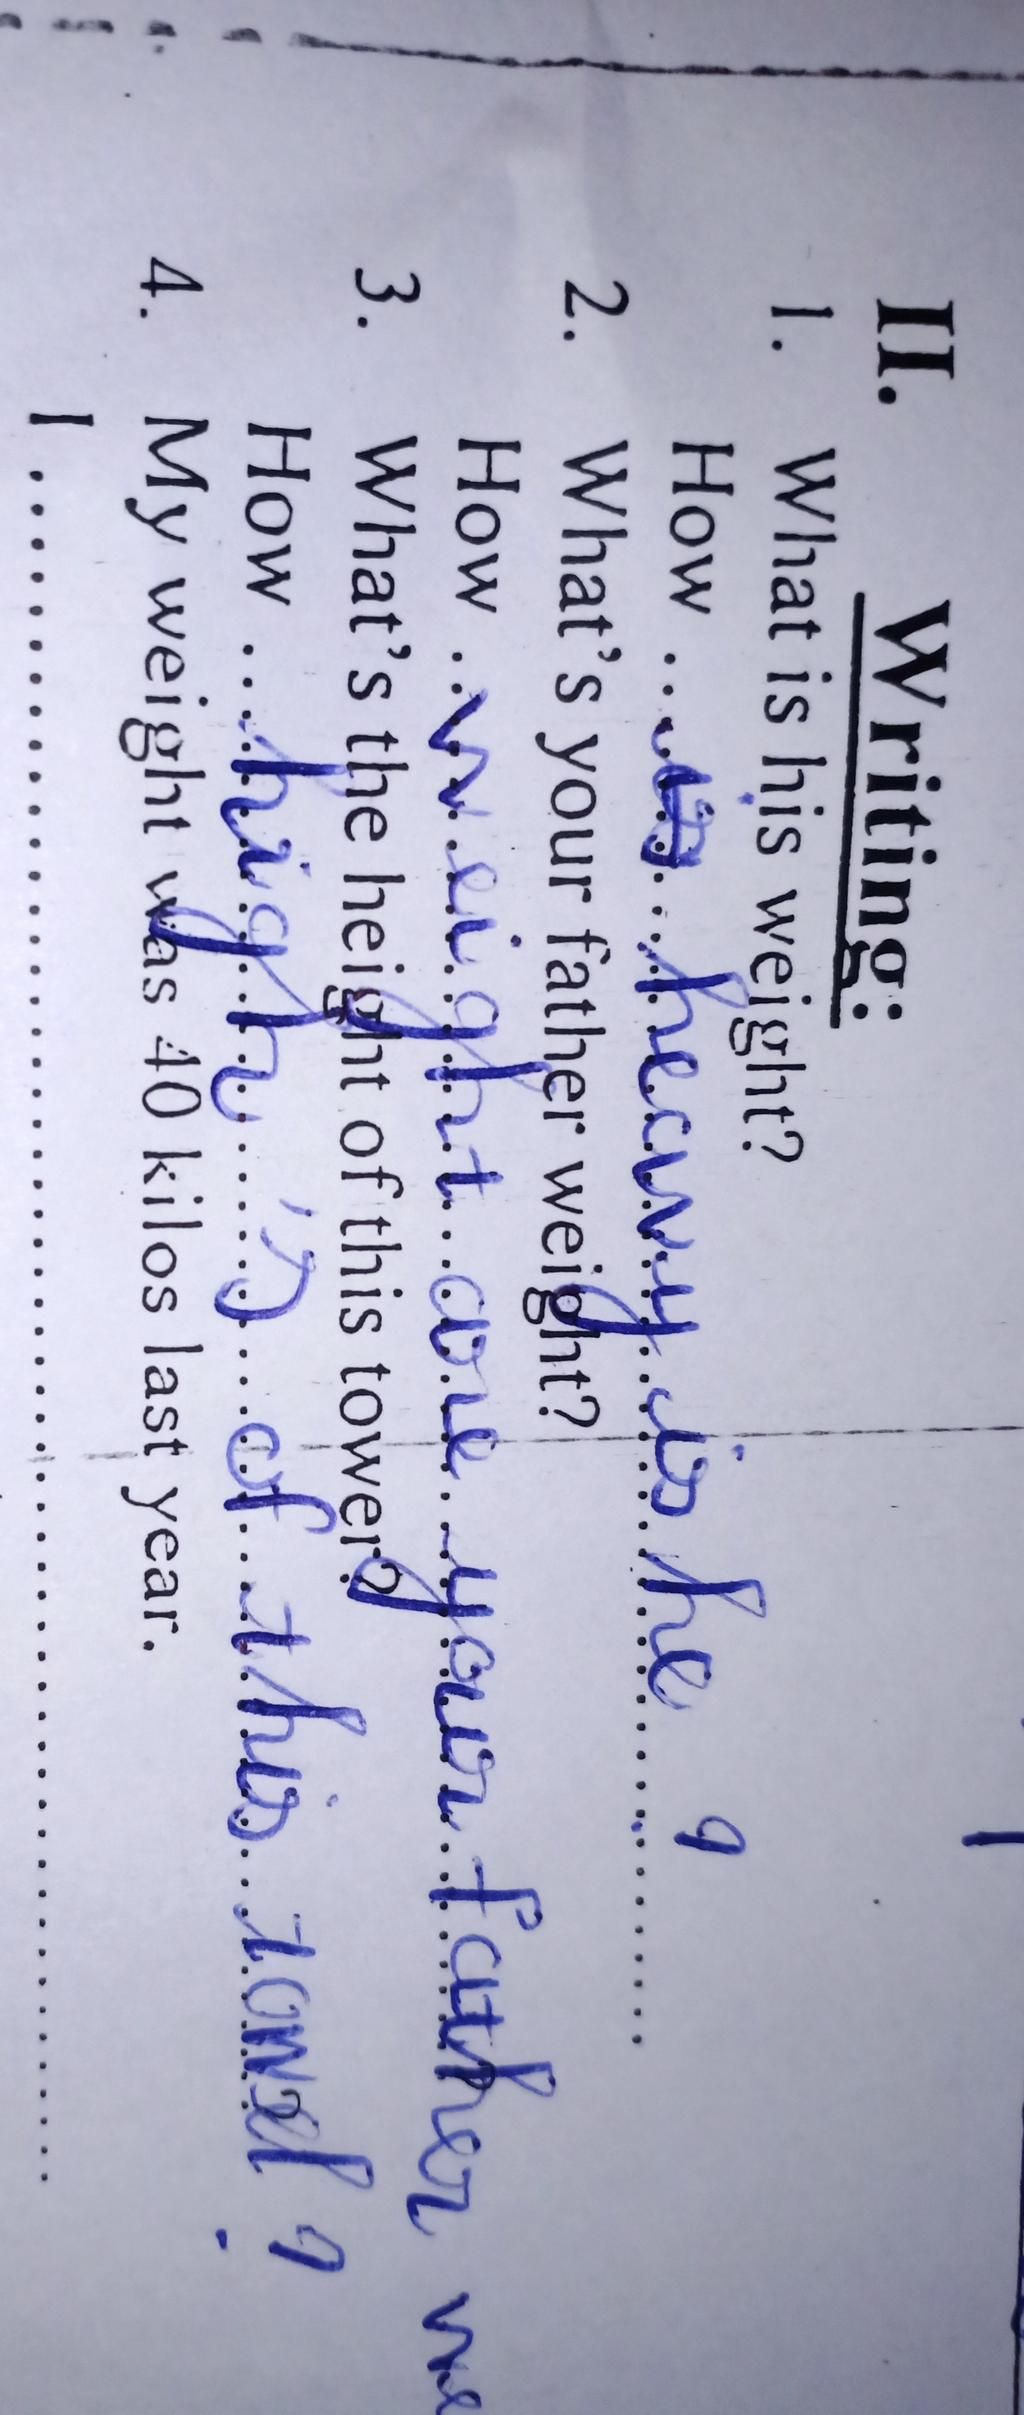 II. Writing:
1. What is his weight?
How ........ heavy is he ........ ?
2. What's your father weight?
How .. weight are your father we
3. What's the height of this tower?
How ... high ... is ... of this towel ?
4. My weight was 40 kilos last year.
I ........................................